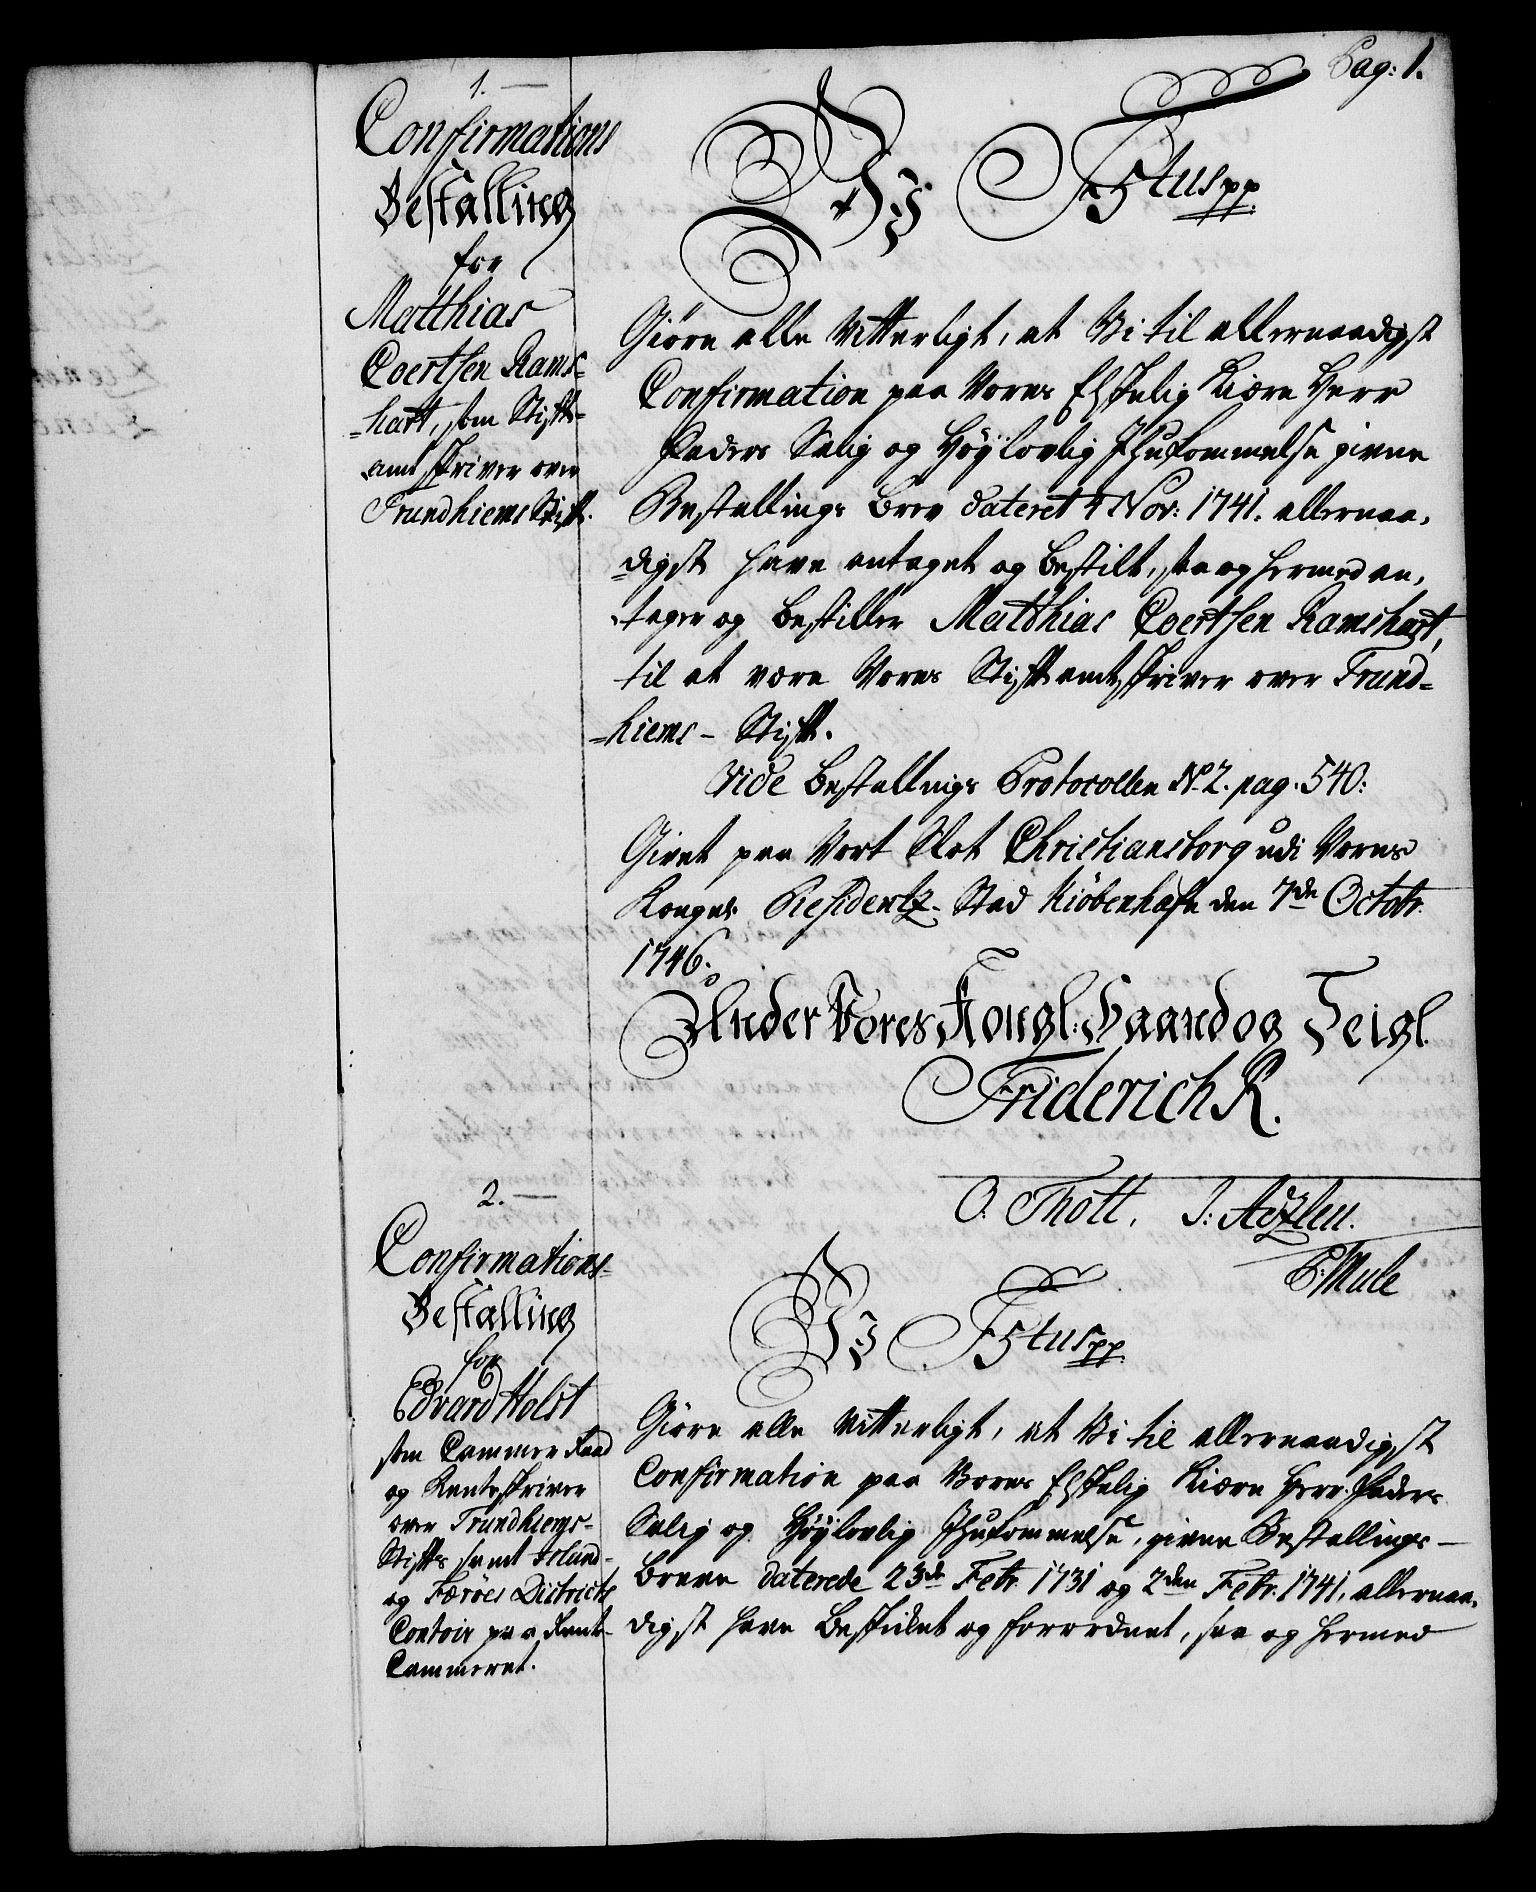 Pag: 1.
1.
Confirmations
Bestalling
for
Matthias
Coertsen Rams-
hart, som Stifts-
amtskriver over
Trundhiems Stift.
Wy F5tus pp
Giøre alle Vitterligt, at Vi til allernaadigst
Confirmation paa Vores Elskelig Kiære Herr
Faders Salig og Høylovlig Ihukommelse givne
Bestallings Brev dateret 4 Nov: 1741. allernaa-
digst have antaget og bestilt, saa og hermed an-
tager og bestiller Matthias Coertsen Ramshart,
til at være Vores Stiftamtskriver over Trund-
hiems-Stift.
Vide Bestallings Protocollen No 2. pag. 540:
Givet paa Vort Slot Christiansborg udi Vores
Konget. Residentz-Stad Kiøbenhafn den 7de Octobr.
1746.
Under Vores Kongl: Haand og Seigl.
Friderich R.
O. Thott. J: Aczlen.
P: Mule
2.
Confirmations-
Bestalling
for
Edvard Holst
som Cammer Raad
og Renteskriver
over Trundhiems-
Stifts samt Island-
og Færöes Districts
Contoir paa Rente-
Cammeret.
Wy F5tus pp.
Giøre alle Vitterligt, at Vi til allernaadigst
Confirmation paa Vores Elskelig Kiære Herr Faders
Salig og Høylovlig Ihukommelse, givne Bestallings-
Breve daterede 23de Febr. 1731 og 2den Febr. 1741, allernaa-
digst have beskikket og forordnet, saa og hermed